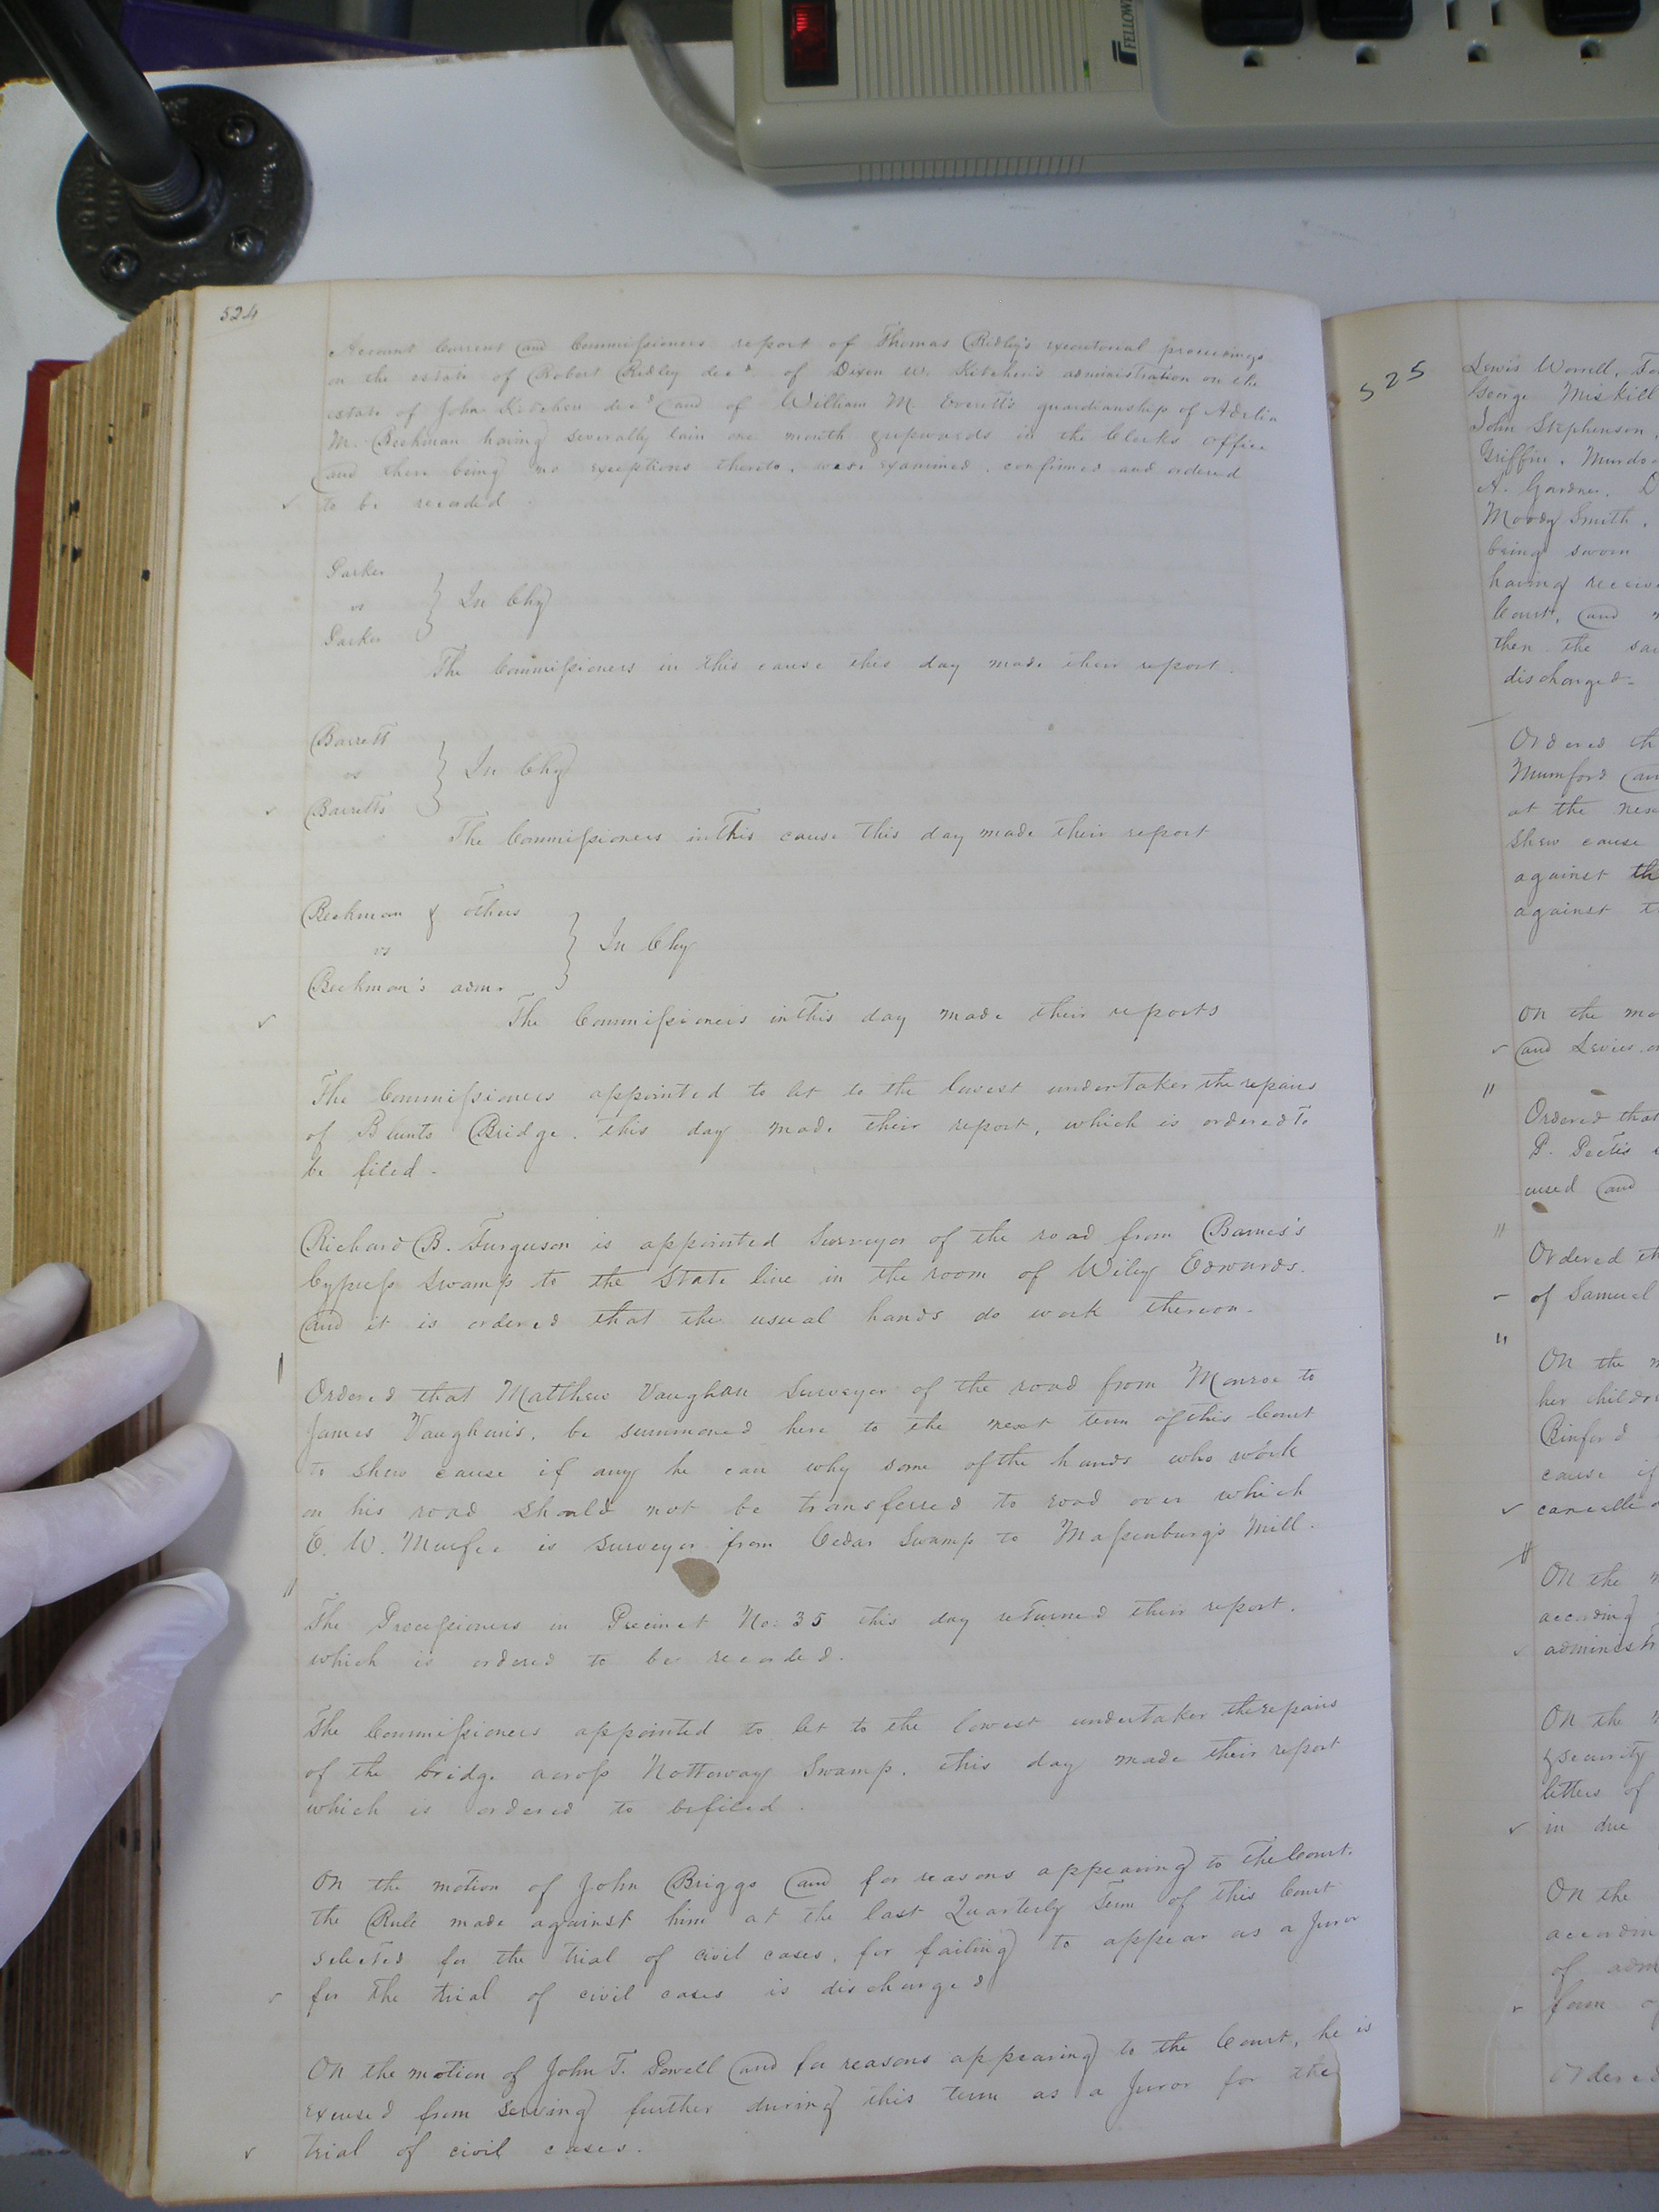 FELLOW
524
Account Current and Commissioners report of Thomas Ridley's executorial proceedings
on the estate of Robert Ridley decd. of Dixon W. Kitchen's administration on the
estate of John Kitchen decd and of William M. Everett's guardianship of Adelia
M. Beekman having severally lain one month & upwards in the Clerks office
and there being no exceptions thereto, were examined, confirmed and ordered
to be recorded.
Parker
vs
Parker
In Chy
The Commissioners in this cause this day made their report.
Barrett
vs
Barretts
In Chy
The Commissioners in this cause this day made their report
Beekman & others
vs
Beekman's admr
In Chy
The Commissioners in this day made their reports
The Commissioners appointed to let to the lowest undertaker the repairs
of Blunts Bridge, this day made their report, which is ordered to
be filed.
Richard B. Furguson is appointed Surveyor of the road from Barnes's
Cypress Swamp to the State line in the room of Wiley Edwards.
and it is ordered that the usual hands do work thereon.
Ordered that Matthew Vaughan Surveyor of the road from Monroe to
James Vaughan's, be summoned here to the next term of this Court
to shew cause if any he can why some of the hands who work
on his road should not be transferred to road over which
E. W. Murfee is Surveyor from Cedar Swamp to Massenburg's Mill.
The Processioners in Precinct No: 35 this day returned their report,
which is ordered to be recorded.
The Commissioners appointed to let to the lowest undertaker the repairs
of the bridge across Nottoway Swamp, this day made their report
which is ordered to be filed.
On the motion of John Briggs and for reasons appearing to the Court.
the Rule made against him at the last Quarterly Term of this Court
selected for the trial of civil cases, for failing to appear as a Juror
for the trial of civil cases is discharged
On the motion of John T. Powell and for reasons appearing to the Court, he is
excused from serving further during this term as a Juror for the
trial of civil cases.
525
Lewis Worrell,
George Miskill
John Stephenson,
Griffin, Murdo
A. Gardner, D
Moody Smith,
being sworn
having receiv
Court, and
then the sai
discharged.
Ordered th
Mumford an
at the nex
shew cause
against th
against t
On the mo
and Levies on
Ordered that
P. Pretis
cused and
Ordered th
of Samuel
On the m
her childr
Binford
cause if
cancelled
On the m
according
administr
On the
& security
letters of
in due
On the
accordin
of adm
form of
Ordered